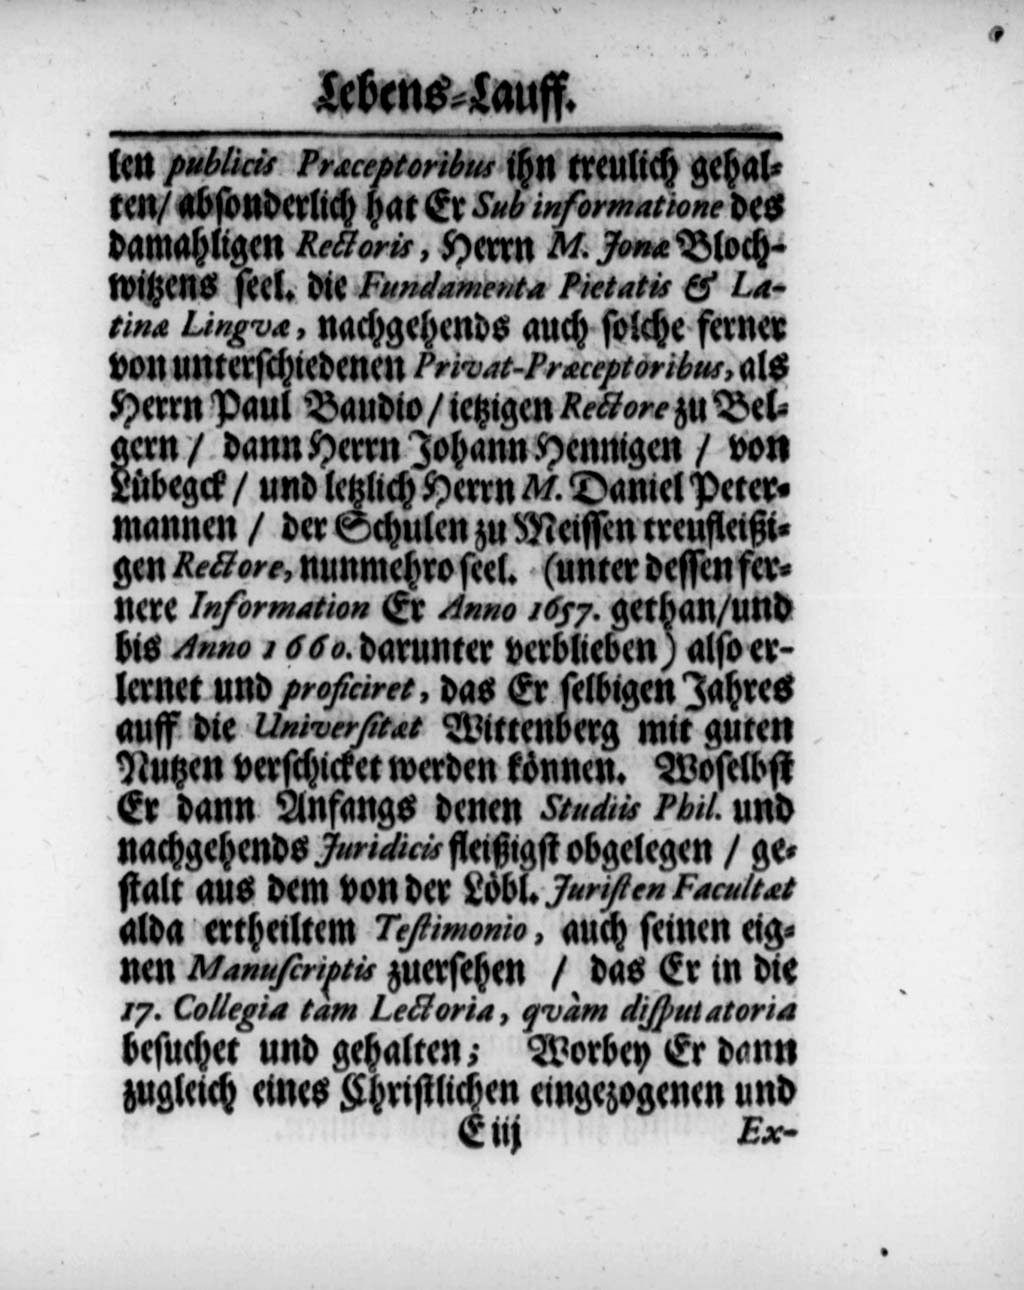 Lebens-Lauff.
len publicis Præceptoribus ihn treulich gehal-
ten/ absonderlich hat Er Sub informatione des
damahligen Rectoris, Herrn M. Jonæ Bloch-
witzens seel. die Fundamenta Pietatis & La-
tinæ Lingvæ, nachgehends auch solche ferner
von unterschiedenen Privat-Præceptoribus, als
Herrn Paul Baudio / ietzigen Rectore zu Bel-
gern / dann Herrn Johann Hennigen / von
Lübegck / und letzlich Herrn M. Daniel Peter-
mannen / der Schulen zu Meissen treufleißi-
gen Rectore, nunmehro seel. (unter dessen fer-
nere Information Er Anno 1657. gethan/und
bis Anno 1660. darunter verblieben) also er-
lernet und proficiret, das Er selbigen Jahres
auff die Universitæt Wittenberg mit guten
Nutzen verschicket werden können. Woselbst
Er dann Anfangs denen Studiis Phil. und
nachgehends Juridicis fleißigst obgelegen / ge-
stalt aus dem von der Löbl. Juristen Facultæt
alda ertheiltem Testimonio, auch seinen eig-
nen Manuscriptis zuersehen / das Er in die
17. Collegia tàm Lectoria, qvàm disputatoria
besuchet und gehalten; Worbey Er dann
zugleich eines Christlichen eingezogenen und
E iij Ex-